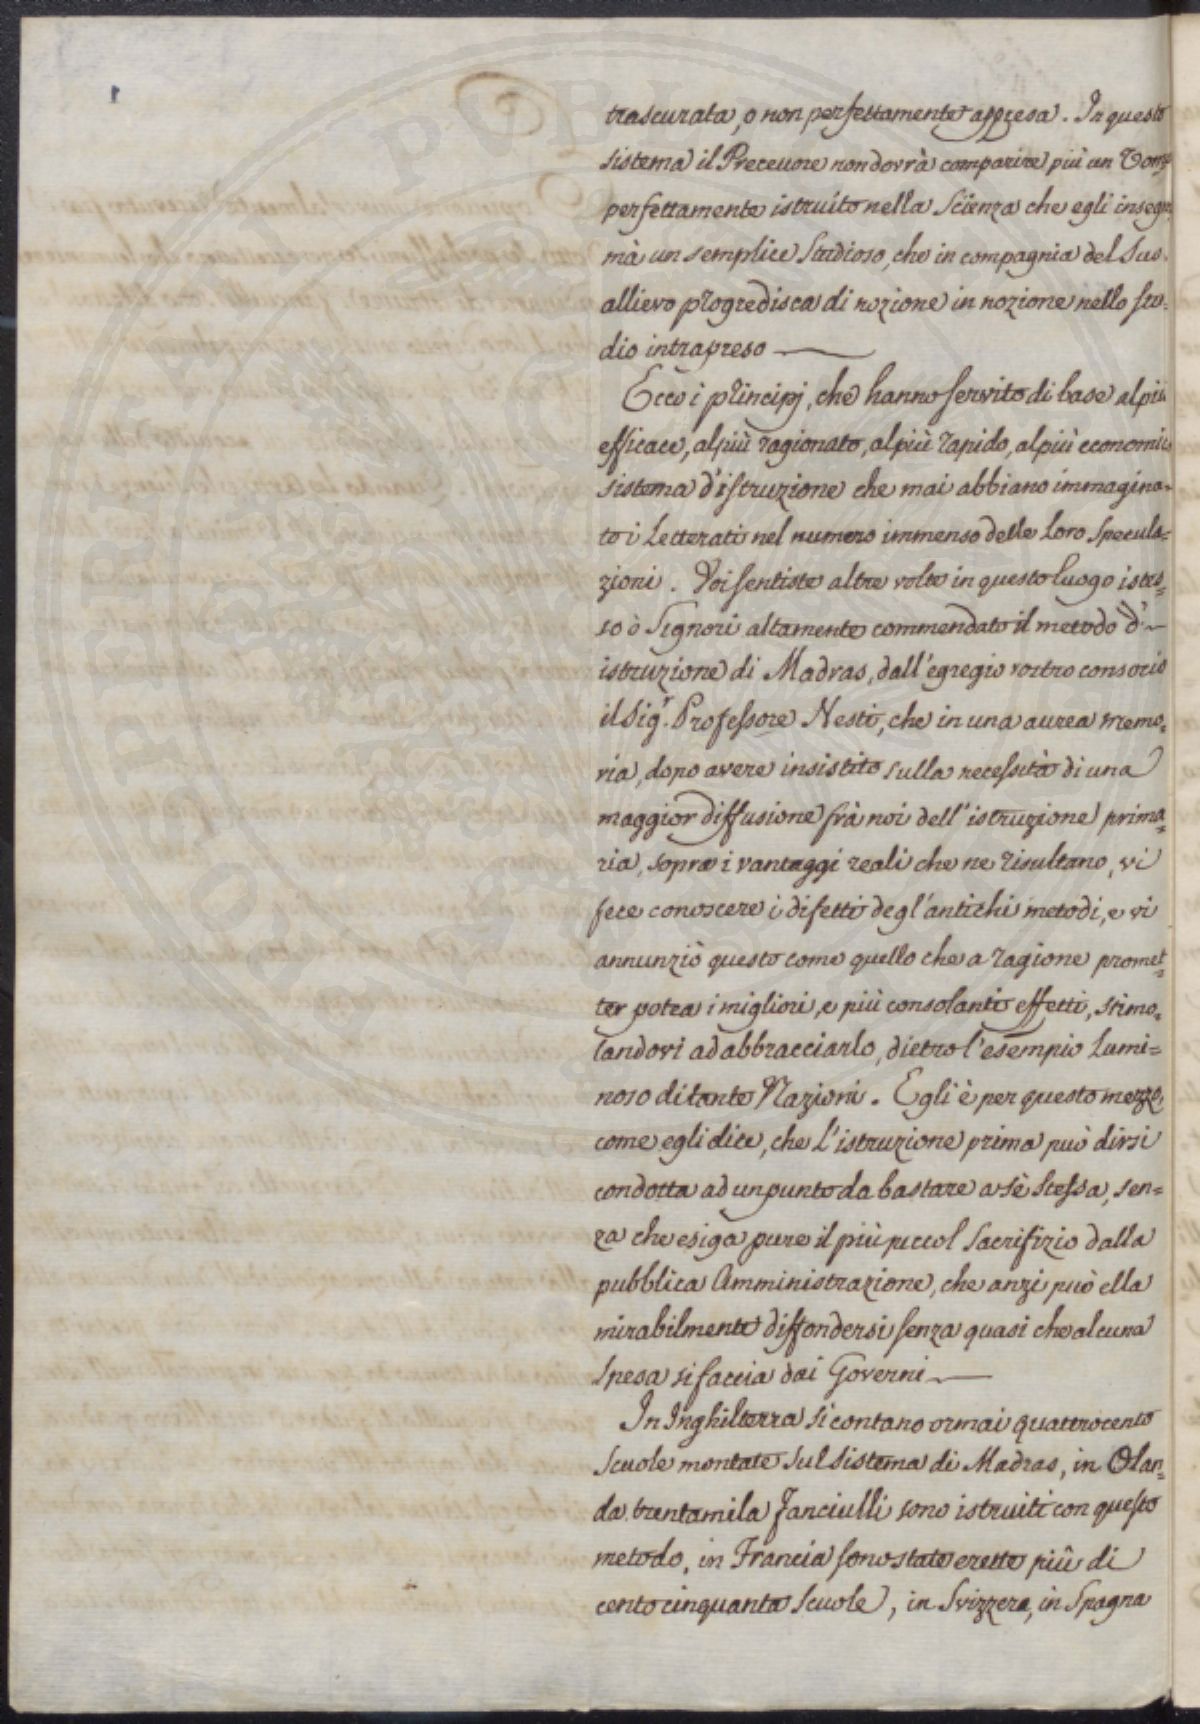 trascurata, o non perfettamente appresa. In questo
sistema il Precettore non dovrà comparire più un
perfettamente istruito nella Scienza che egli insegna
mà un semplice Studioso, che in compagnia del Suo
allievo progredisca di nozione in nozione nello stu-
dio intrapreso
Ecco i principj, che hanno servito di base al più
efficace, al più ragionato, al più rapido, al più economico
sistema d'istruzione che mai abbiano immagina-
to i Letterati nel numero immenso delle Loro Specula=
zioni. Voi sentiste altre volte in questo luogo istes=
so ò Signori altamente commendato il metodo d'
istruzione di Madras, dall'egregio vostro consocio
il Sig.r Professore Nesti, che in una aurea memo=
ria, dopo avere insistito sulla necessità di una
maggior diffusione frà noi dell'istruzione prima=
ria, sopra i vantaggi reali che ne risultano, vi
fece conoscere i difetti degl'antichi metodi, e vi
annunziò questo come quello che a ragione promet=
ter potea i migliori, e più consolanti effetti, stimo=
landovi ad abbracciarlo, dietro l'esempio Lumi=
noso di tante Nazioni. Egli è per questo mezzo,
come egli dice, che L'istruzione prima può dirsi
condotta ad un punto da bastare a sè Stessa, sen=
za che esiga pure il più piccol Sacrifizio dalla
pubblica Amministrazione, che anzi può ella
mirabilmente diffondersi senza quasi che alcuna
Spesa si faccia dai Governi
In Inghilterra si contano ormai quattrocento
Scuole montate Sul Sistema di Madras, in Olan=
da trentamila fanciulli sono istruiti con questo
metodo, in Francia sono state erette più di
cento cinquanta Scuole, in Svizzera, in Spagna